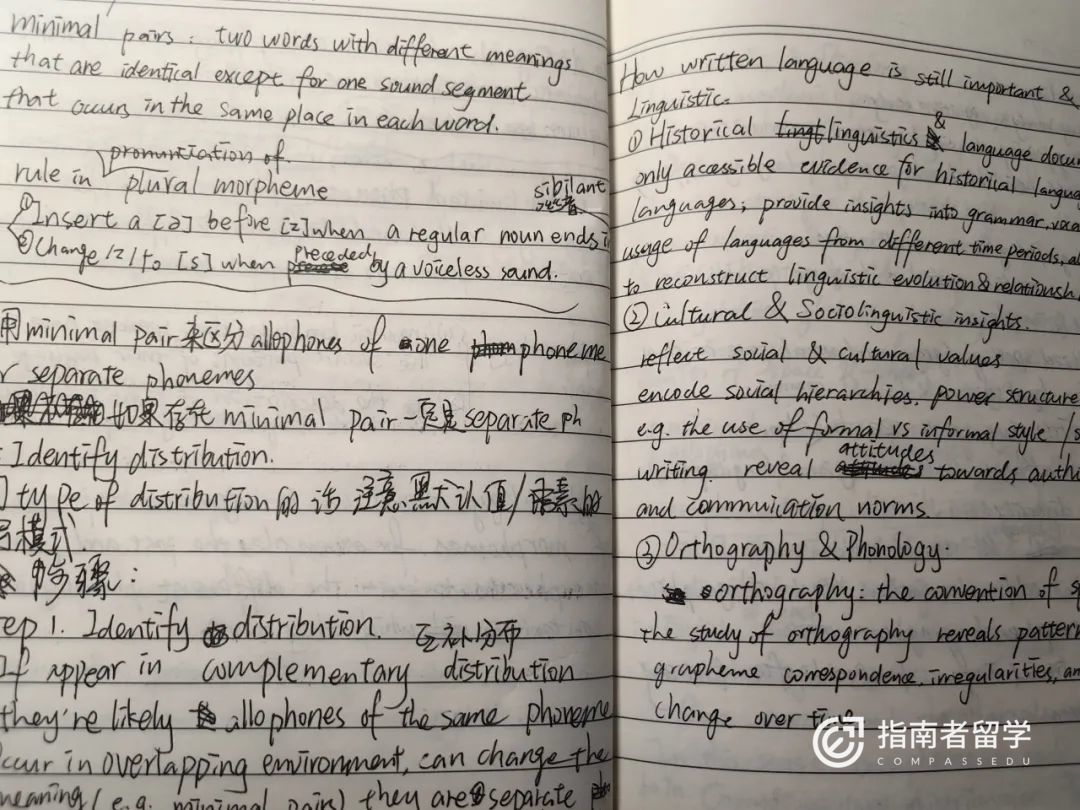 minimal pairs: two words with different meanings
that are identical except for one sound segment
that occurs in the same place in each word.
pronunciation of
rule in plural morpheme
sibilant
①Insert a [ə] before [z] when a regular noun ends i
②Change /z/ to [s] when preceded by a voiceless sound.
用minimal pair来区分allophones of one phoneme
r separate phonemes
如果存在minimal pair一定是separate ph
: Identify distribution.
type of distribution的话 注意默认值/
模式.
步骤:
ep 1. Identify distribution. 互补分布
If appear in complementary distribution
they're likely allophones of the same phoneme
Occur in overlapping environment, can change the
meaning (e.g. minimal pairs) they are separate
How written language is still important &
Linguistic.
①Historical linguistics & language docu
only accessible evidence for historical langua
languages; provide insights into grammar, voca
usage of languages from different time periods, al
to reconstruct linguistic evolution & relationsh
②Cultural & Sociolinguistic insights.
reflect social & cultural values
encode social hierarchies. power structure
e.g. the use of formal vs informal style /s
writing. reveal attitudes towards autho
and communication norms.
③Orthography & Phonology.
orthography: the convention of s
the study of orthography reveals pattern
grapheme correspondence, irregularities, an
change over time
指南者留学
COMPASSEDU